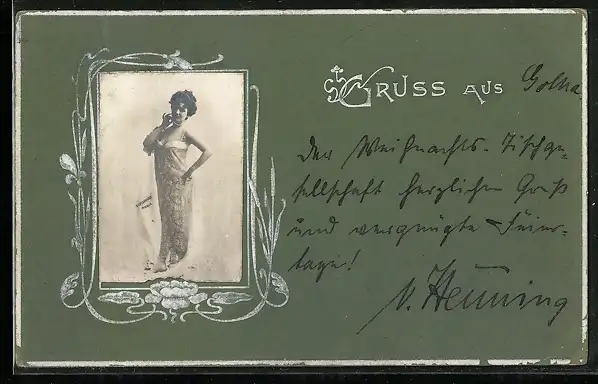 GRUSS AUS Gotha.
Der Weihnachts-Tischge-
sellschaft herzlichen Gruß
und vergnügte Feier-
tage!
v. Henning